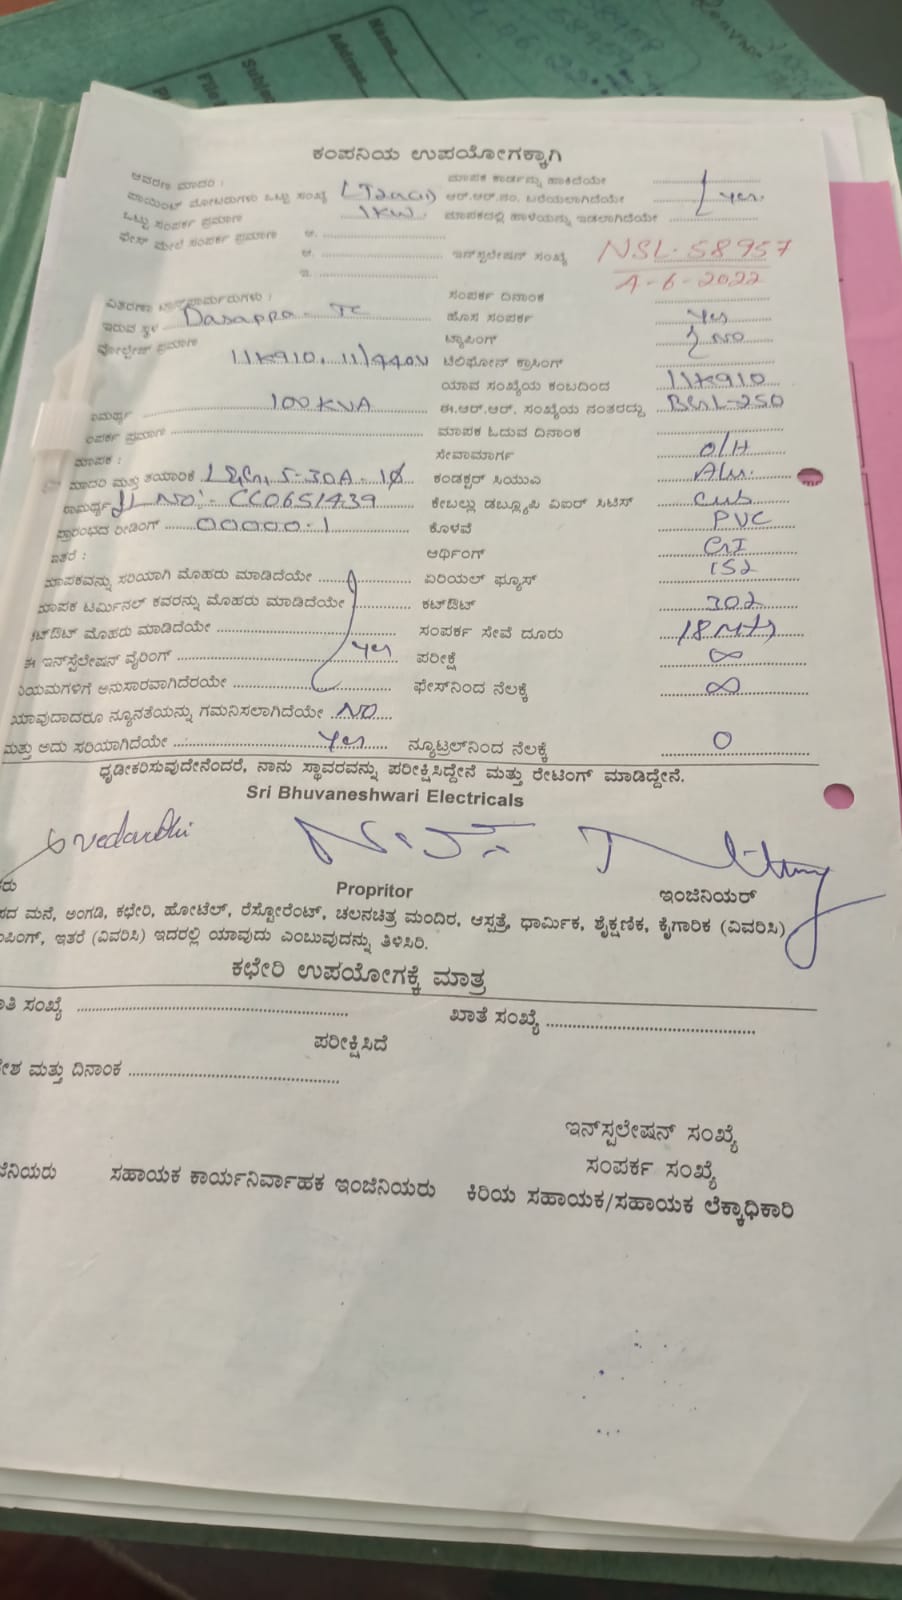 Name
Address
Subject
File
ಕಂಪನಿಯ ಉಪಯೋಗಕ್ಕಾಗಿ
ಆವರಣ ಮಾದರಿ : ಮಾಪಕ ಕಾರ್ಡನ್ನು ಹಾಕಿದೆಯೇ
ಪಾಯಿಂಟ್ ಮೋಟರುಗಳು ಒಟ್ಟು ಸಂಖ್ಯೆ ಆರ್.ಆರ್.ನಂ. ಬರೆಯಲಾಗಿದೆಯೇ yes
ಒಟ್ಟು ಸಂಪರ್ಕ ಪ್ರಮಾಣ 1KW ಮಾಪಕದಲ್ಲಿ ಹಾಳೆಯನ್ನು ಇಡಲಾಗಿದೆಯೇ
ಫೇಸ್ ಮೇಲೆ ಸಂಪರ್ಕ ಪ್ರಮಾಣ ಅ.
ಆ. ಇನ್‌ಸ್ಟಲೇಷನ್ ಸಂಖ್ಯೆ NSL-58957
ಇ. 1-6-2022
ವಿತರಣಾ ಟ್ರಾನ್ಸ್‌ಫಾರ್ಮರುಗಳು : ಸಂಪರ್ಕ ದಿನಾಂಕ
ಇರುವ ಸ್ಥಳ Dasappa - TC ಹೊಸ ಸಂಪರ್ಕ Yes
ವೋಲ್ಟೇಜ್ ಪ್ರಮಾಣ ಟ್ಯಾಪಿಂಗ್ NO
11K910, 11/440V ಟೆಲಿಫೋನ್ ಕ್ರಾಸಿಂಗ್
ಯಾವ ಸಂಖ್ಯೆಯ ಕಂಬದಿಂದ 11K910
100KVA ಈ.ಆರ್.ಆರ್. ಸಂಖ್ಯೆಯ ನಂತರದ್ದು
ಪ್ರಮಾಣ ಮಾಪಕ ಓದುವ ದಿನಾಂಕ
ಮಾಪಕ : ಸೇವಾಮಾರ್ಗ O/H
ಮಾದರಿ ಮತ್ತು ತಯಾರಿಕೆ 5-30A-1Ø ಕಂಡಕ್ಟರ್ ಸಿಯುವಿ Alu.
NO:- CC0651439 ಕೇಬಲ್ಲು ಡಬ್ಲ್ಯೂಪಿ ವಿಐರ್ ಸಿಟಿಸ್
ಪ್ರಾರಂಭದ ರೀಡಿಂಗ್ 00000.1 ಕೊಳವೆ PVC
ಇತರೆ : ಆರ್ಥಿಂಗ್ GI
ಮಾಪಕವನ್ನು ಸರಿಯಾಗಿ ಮೊಹರು ಮಾಡಿದೆಯೇ ಏರಿಯಲ್ ಫ್ಯೂಸ್ 152
ಮಾಪಕ ಟರ್ಮಿನಲ್ ಕವರನ್ನು ಮೊಹರು ಮಾಡಿದೆಯೇ ಕಟ್‌ಔಟ್ 302
ಕಟ್‌ಔಟ್ ಮೊಹರು ಮಾಡಿದೆಯೇ ಸಂಪರ್ಕ ಸೇವೆ ದೂರು 18 Mts
ಈ ಇನ್‌ಸ್ಟಲೇಷನ್ ವೈರಿಂಗ್ Yes ಪರೀಕ್ಷೆ ∞
ನಿಯಮಗಳಿಗೆ ಅನುಸಾರವಾಗಿದೆರಯೇ ಫೇಸ್‌ನಿಂದ ನೆಲಕ್ಕೆ ∞
ಯಾವುದಾದರೂ ನ್ಯೂನತೆಯನ್ನು ಗಮನಿಸಲಾಗಿದೆಯೇ NO
ಮತ್ತು ಅದು ಸರಿಯಾಗಿದೆಯೇ Yes ನ್ಯೂಟ್ರಲ್‌ನಿಂದ ನೆಲಕ್ಕೆ 0
ಧೃಡೀಕರಿಸುವುದೇನೆಂದರೆ, ನಾನು ಸ್ಥಾವರವನ್ನು ಪರೀಕ್ಷಿಸಿದ್ದೇನೆ ಮತ್ತು ರೇಟಿಂಗ್ ಮಾಡಿದ್ದೇನೆ.
Sri Bhuvaneshwari Electricals
Propritor ಇಂಜಿನಿಯರ್
ಮನೆ, ಅಂಗಡಿ, ಕಛೇರಿ, ಹೋಟೆಲ್, ರೆಸ್ಟೋರೆಂಟ್, ಚಲನಚಿತ್ರ ಮಂದಿರ, ಆಸ್ಪತ್ರೆ, ಧಾರ್ಮಿಕ, ಶೈಕ್ಷಣಿಕ, ಕೈಗಾರಿಕ (ವಿವರಿಸಿ)
ಇತರೆ (ವಿವರಿಸಿ) ಇದರಲ್ಲಿ ಯಾವುದು ಎಂಬುವುದನ್ನು ತಿಳಿಸಿರಿ.
ಕಛೇರಿ ಉಪಯೋಗಕ್ಕೆ ಮಾತ್ರ
ಸಂಖ್ಯೆ ಖಾತೆ ಸಂಖ್ಯೆ
ಪರೀಕ್ಷಿಸಿದೆ
ಮತ್ತು ದಿನಾಂಕ
ಇನ್‌ಸ್ಪಲೇಷನ್ ಸಂಖ್ಯೆ
ಸಂಪರ್ಕ ಸಂಖ್ಯೆ
ಸಹಾಯಕ ಕಾರ್ಯನಿರ್ವಾಹಕ ಇಂಜಿನಿಯರು ಕಿರಿಯ ಸಹಾಯಕ/ಸಹಾಯಕ ಲೆಕ್ಕಾಧಿಕಾರಿ